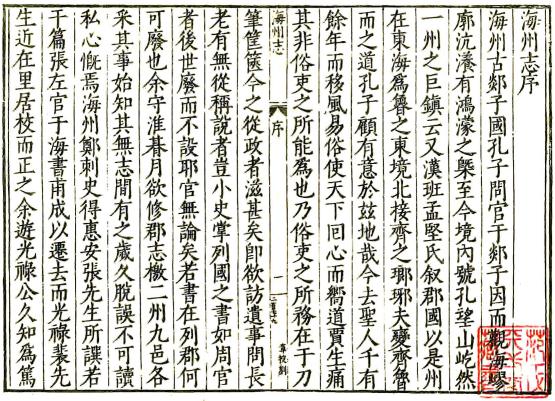 海州志序
海州古郯子國孔子問官于郯子因而觀海寥
廓沆瀁有鴻濛之槩至今境內號孔望山屹然
一州之巨鎮云又漢班孟堅氏叙郡國以是州
在東海為魯之東境北接齊之瑯琊夫變齊魯
而之道孔子顧有意於玆地哉今去聖人千有
餘年而移風易俗使天下回心而嚮道賈生痛
其非俗吏之所能為也乃俗吏之所務在于刀
海州志
序
一
筆筐篋今之從政者滋甚矣卽欲訪遺事問長
老有無從稱說者豈小史掌列國之書如周官
者後世廢而不設耶官無論矣若書在列郡何
可廢也余守淮朞月欲修郡志檄二州九邑各
采其事始知其無志間有之歲久脫誤不可讀
私心慨焉海州鄭刺史得惠安張先生所譔若
干篇張左官于海書甫成以遷去而光祿裴先
生近在里居校而正之余遊光祿公久知為篤